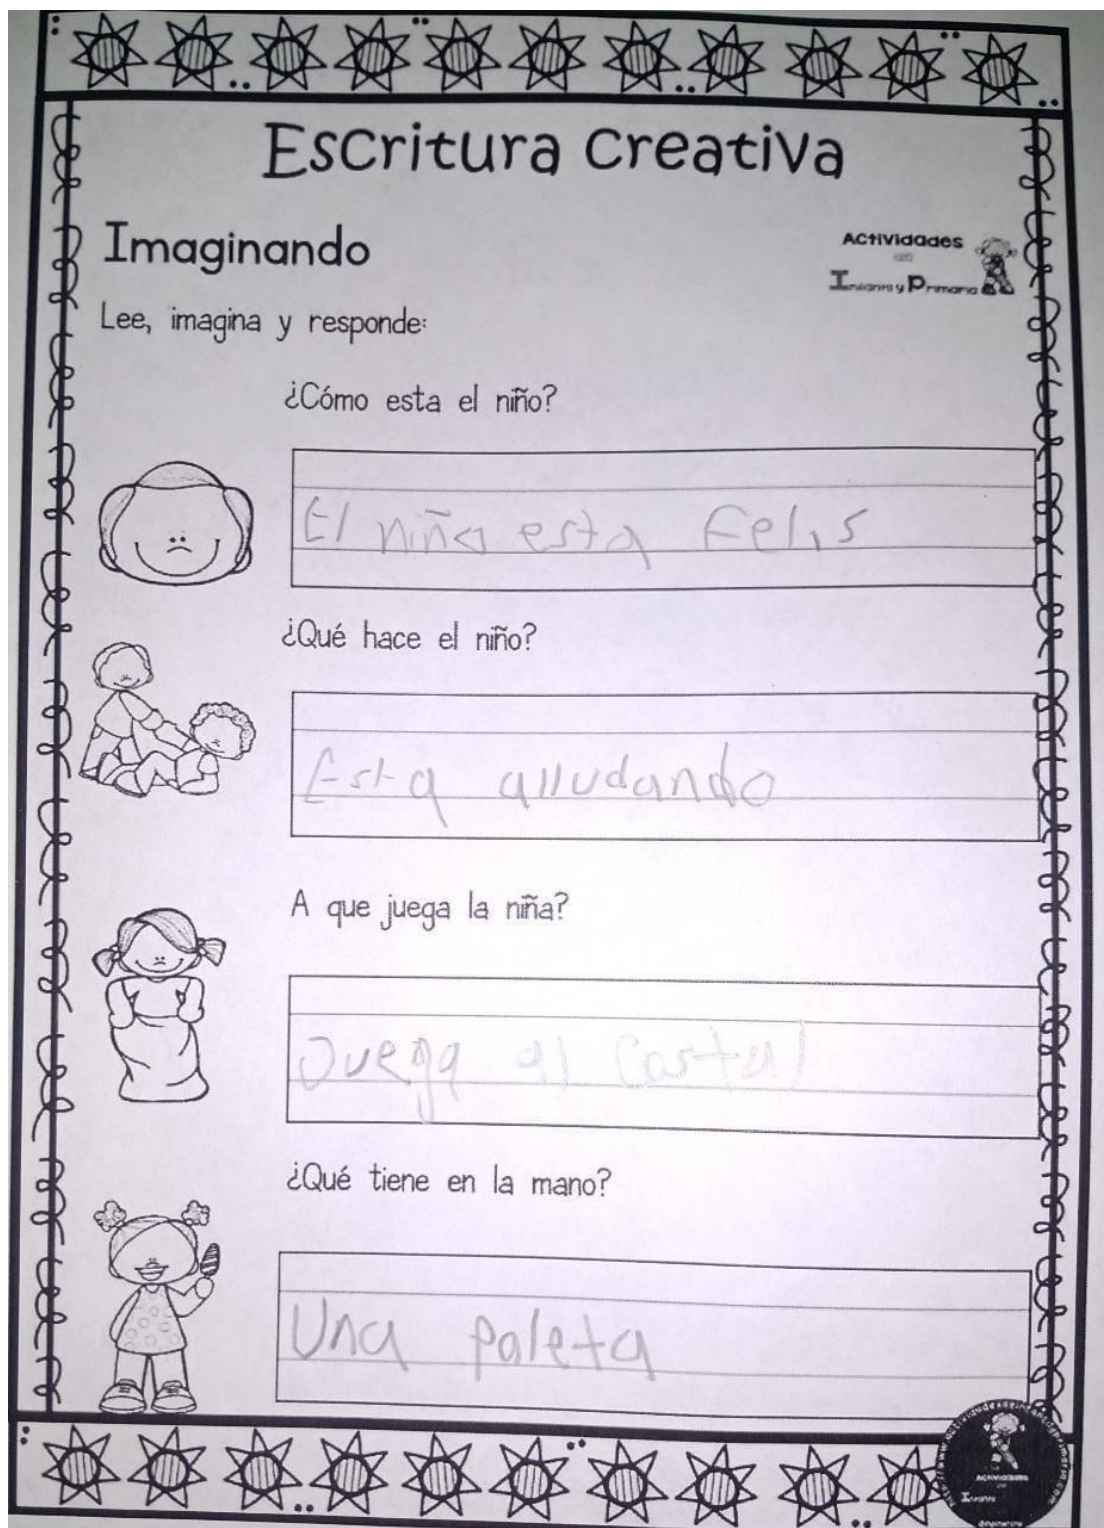 Escritura creativa
Imaginando
Actividades
Infantil y Primaria
Lee, imagina y responde:
¿Cómo esta el niño?
El niño esta Felis
¿Qué hace el niño?
Esta alludando
A que juega la niña?
Juega al Costal
¿Qué tiene en la mano?
Una paleta
Actividades